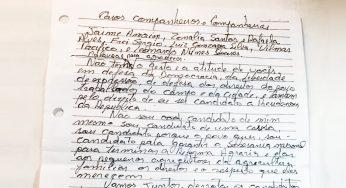 Caros companheiros e Companheiras
Jaime Amorim, Zonália Santos, Rafaela
Alves, Frei Sergio, Luiz Gonzaga Silva, Vilmar
Pacífico e Leonardo Nunes Soares
Palavras para agradecer.
Não tenho o gesto e a atitude de vocês,
em defesa da Democracia, da liberdade
de expressão, a defesa dos direitos do povo
trabalhador do campo e da cidade, e também
pelo direito de eu ser candidato a Presidência
da República
Não sou candidato de mim
mesmo sou candidato de uma causa,
sou candidato porque o povo quer, sou
candidato para garantir a Soberania
para terminar a Reforma Agrária e dar
aos pequenos agricultores da agricultura
familiar os direitos e o respeito que eles
merecem
Vamos juntos